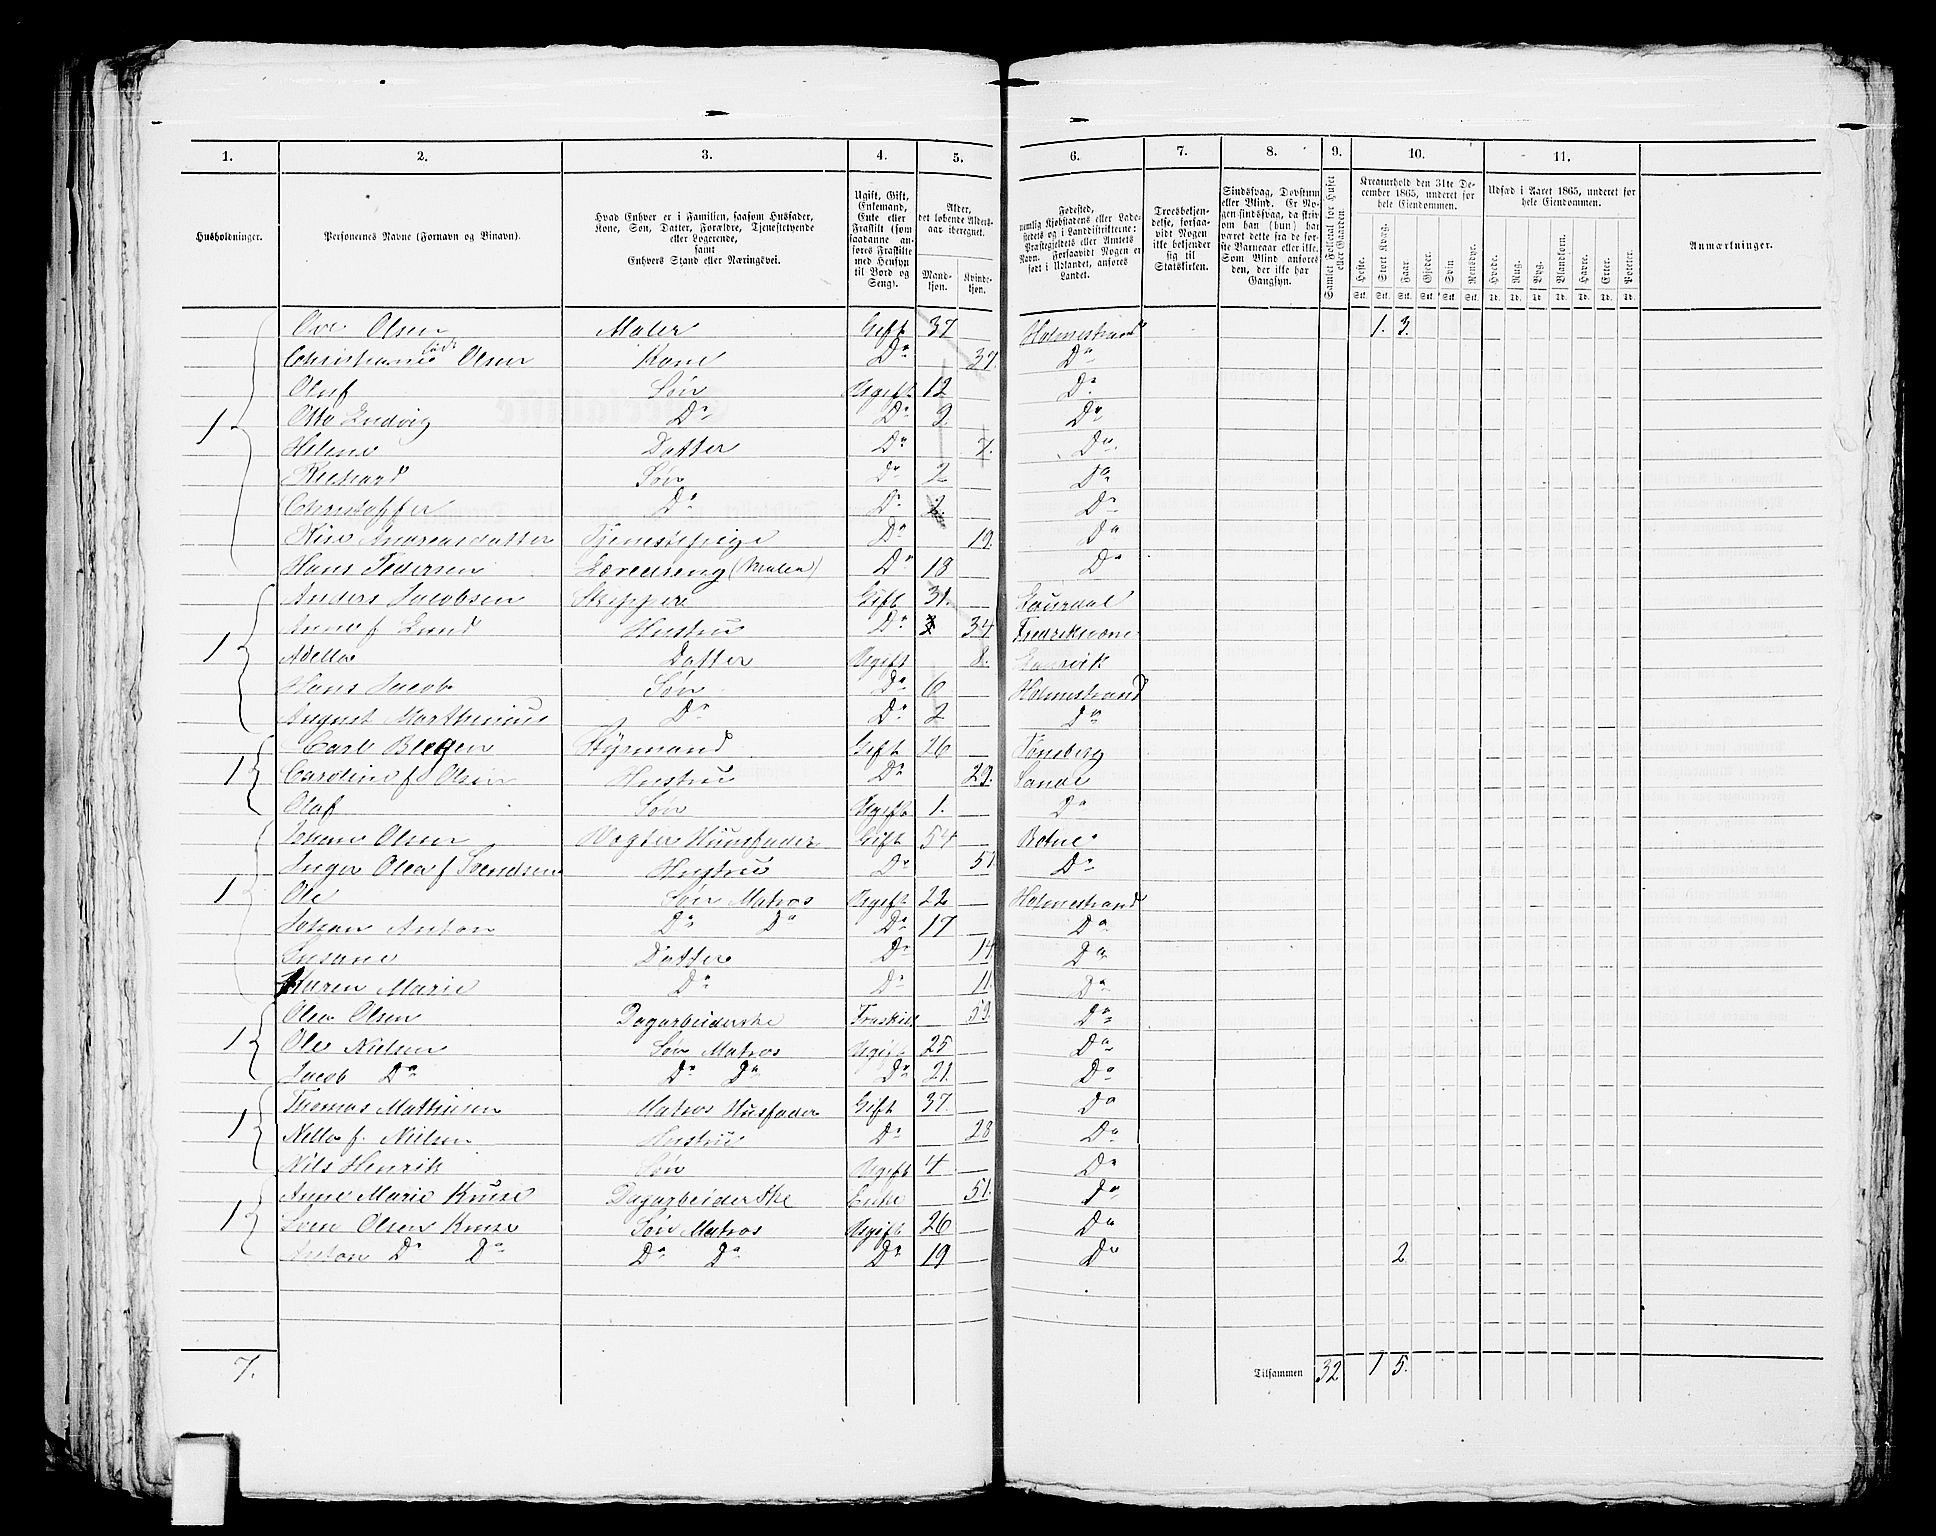 1. 2. 3. 4. 5. 6. 7. 8. 9. 10. 11.
Husholdninger.
Personernes Navne (Fornavn og Binavn).
Hvad Enhver er i Familien, saasom Husfader,
Kone, Søn, Datter, Forældre, Tjenestetyende
eller Logerende,
samt
Enhvers Stand eller Næringsvei.
Ugift, Gift,
Enkemand,
Enke eller
Fraskilt (som
saadanne anføres
Fraskilte
med Hensyn
til Bord og
Seng).
Alder,
det løbende Alders-
aar iberegnet.
Mand-
kjøn.
Kvinde-
kjøn.
Fødested,
nemlig Kjøbstadens eller Lade-
stedets og i Landdistrikterne:
Præstegjeldets eller Amtets
Navn. Forsaavidt Nogen er
født i Udlandet, anføres
Landet.
Troesbekjen-
delse, forsaa-
vidt Nogen
ikke bekjender
sig til
Statskirken.
Sindssvag, Døvstum
eller Blind. Er No-
gen sindssvag, da skriv
om han (hun) har
været dette fra de før-
ste Barneaar eller ikke.
Som Blind anføres
den, der ikke har
Gangsyn.
Samlet Folketal for Huset
eller Gaarden.
Kreaturhold den 31te De-
cember 1865, underet for
hele Eiendommen.
Heste. Stort Kvæg. Faar. Gjeder. Svin Rensdyr.
Stk. Stk. Stk. Stk. Stk. Stk.
Udsæd i Aaret 1865, underet for
hele Eiendommen.
Hvede. Rug. Byg. Blandkorn. Havre. Erter. Poteter.
Td. Td. Td. Td. Td. Td. Td.
Anmærkninger.
Ove Olsen Maler Gift 37 Holmestrand 1. 3.
Christiane født Olsen Kone Do 37. Do
Oluf Søn Ugift 12 Do
1 Otto Ludvig Do Do 9. Do
Helene Datter Do 7. Do
Richard Søn Do 2 Do
Christoffer Do Do 2. Do
Andreasdatter Tjenestepige Do 19. Do
Hans Pedersen Læredreng (Maler) Do 18 Do
Anders Jacobsen Skipper Gift 31. Laurdal
1 Anne f. Lund Hustru Do 34 Fredriksværn
Adella Datter Ugift 8. Laurvik
Hans Jacob Søn Do 6 Holmestrand
August Marthinius Do Do 2 Do
Carl Blegen Styrmand Gift 26 Tönsberg
1 Caroline f. Olsen Hustru Do 29. Sande
Olaf Søn Ugift 1. Do
Johan Olsen Vægter Huusfader Gift 54 Botne
Inger Olea f Svendsen Hustru Do 51 Do
1 Ole Søn Matros Ugift 22 Holmestrand
Johan Anton Do Do Do 17 Do
Susane Datter Do 14 Do
Karen Marie Do Do 11. Do
Olea Olsen Dagarbeiderske Fraskil. 53. Do
1 Ole Nielsen Søn Matros Ugift 25 Do
Jacob Do Do Do Do 21. Do
Thomas Mathisen Matros Husfader Gift 37. Do
1 Nella f. Nielsen Hustru Do 28 Do
Nils Henrik Søn Ugift 4 Do
Anne Marie Kruse Dagarbeiderske Enke 51. Do
1 Sven Olsen Kruse Søn Matros Ugift 26 Do
Anton Do Do Do Do Do 19 Do 2
7. Tilsammen 32 1 5.